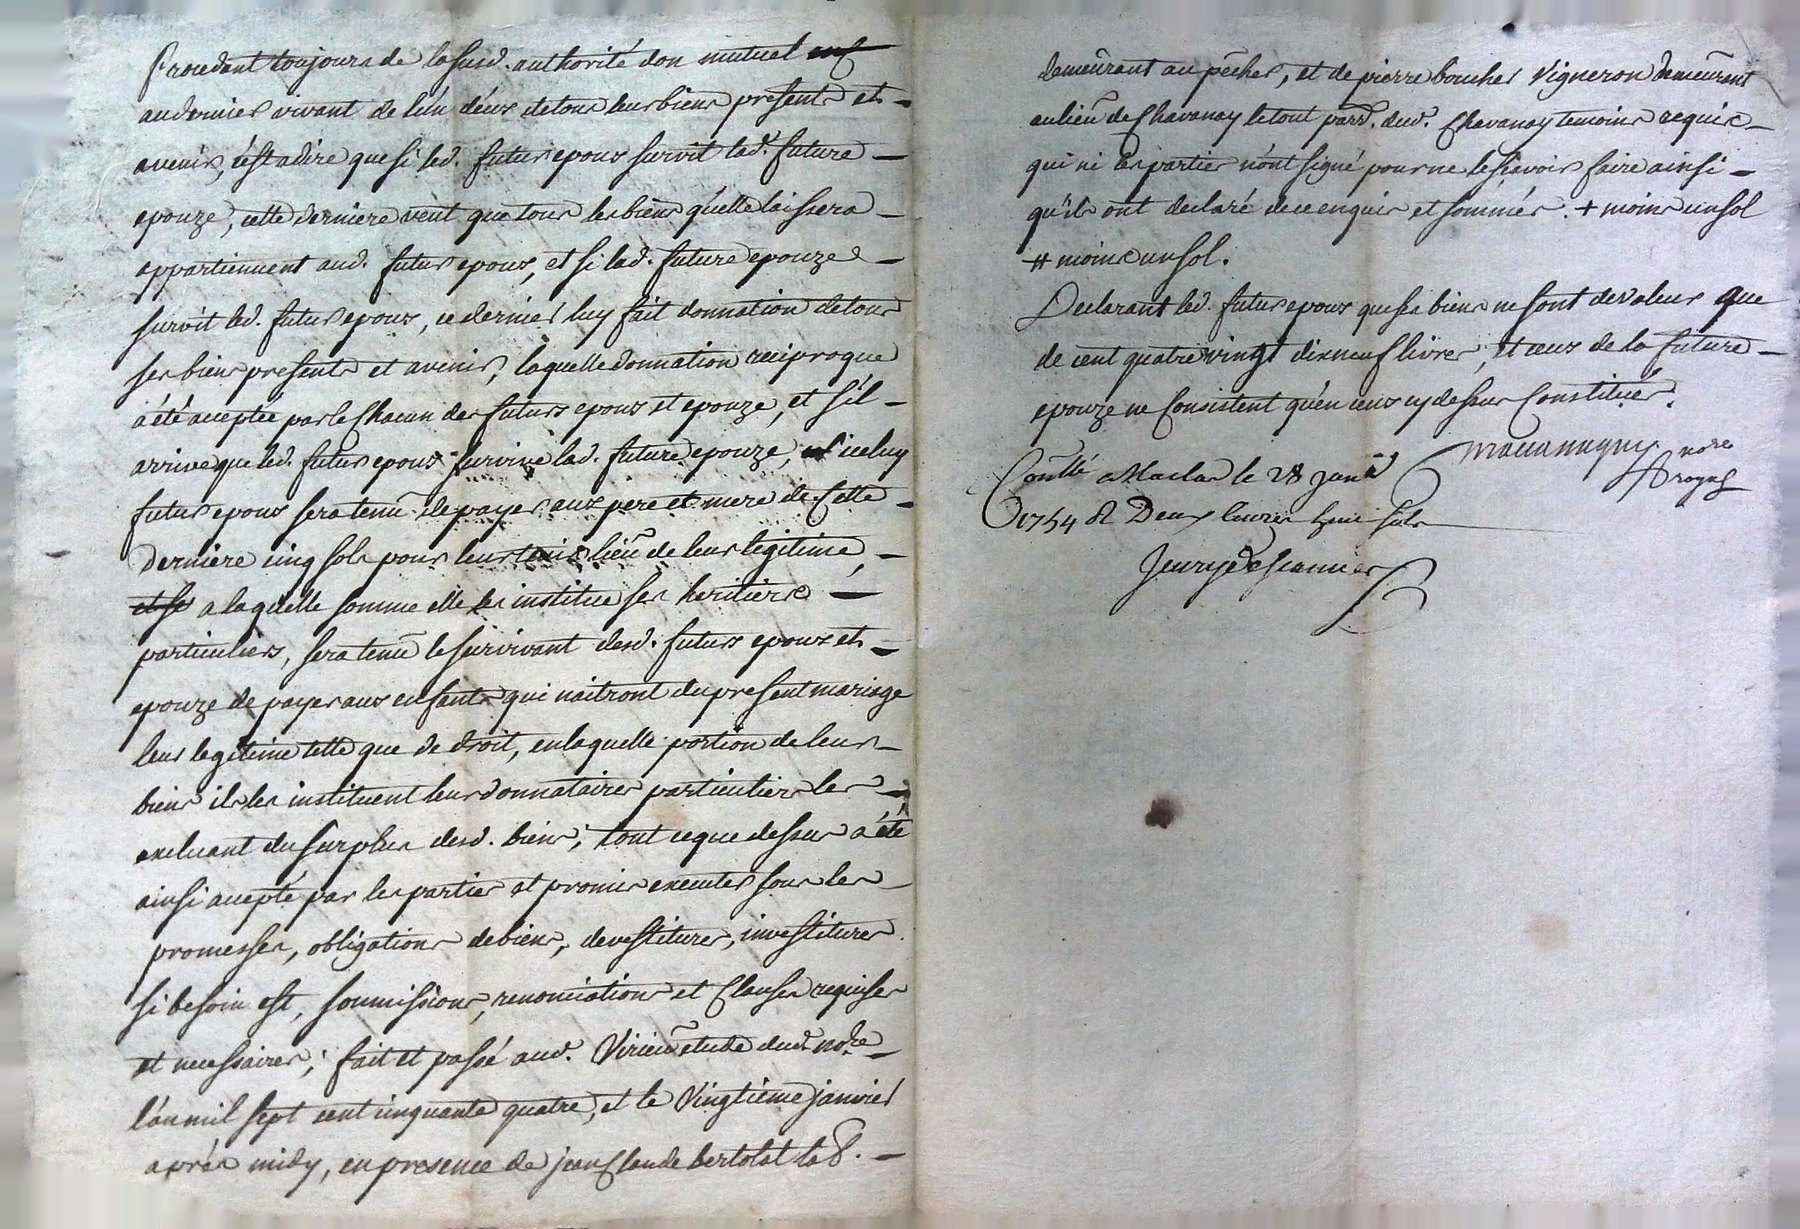 procedant toujours de la susd. authorité don mutuel
au dernier vivant de l'un d'eux de tous leurs biens presents et
avenir, c'est a dire que si led. futur epoux survit lad. future
epouze, cette derniere veut que tous les biens qu'elle laissera
appartiennent aud. futur epoux, et si lad. future epouze
survit led. futur epoux, ce dernier luy fait donnation de tous
ses biens presents et avenir, laquelle donnation reciproque
a été acceptée par le chacun des futurs epoux et epouze, et s'il
arrive que led. futur epoux survive lad. future epouze, iceluy
futur epoux sera tenu de payer aux pere et mere de cette
derniere cinq sols pour leur lieu de leur legitime,
a laquelle somme elle les institue ses heritiers
particuliers, sera tenu le survivant desd. futurs epoux et
epouze de payer aux enfants qui naitront du present mariage
leur legitime telle que de droit, en laquelle portion de leurs
biens ils les instituent leurs donnataires particuliers les
excluant du surplus desd. biens; tout ce que dessus a été
ainsi accepté par les parties et promis executer sous les
promesses, obligations de biens, devestitures, investitures
si besoin est, soumissions, renonciations et clauses requises
et necessaires; fait et passé aud. Virieu etude dud. nore
l'an mil sept cent cinquante quatre, et le vingtieme janvier
après midy, en presence de jean Claude bertolat lab.
demeurant au pècher, et de pierre boucher vigneron demeurant
au lieu de Chavanay le tout parr. dud. Chavanay temoins requis
qui ni les parties n'ont signé pour ne le sçavoir faire ainsi
qu'ils ont declaré de ce enquis et sommés. + moins un sol
# moins un sol.
Declarant led. futur epoux que ses biens ne sont de valeur que
de cent quatre vingt dix neuf livres, et ceux de la future
epouze ne consistent qu'en ceux cy dessus constitués.
nore
royal
Conllé a Maclas le 28 janv
1754 R Deux livres huit sols